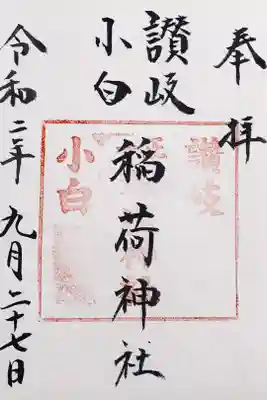 奉拝
讃岐
小白
稲荷神社
令和二年 九月二十七日
讃岐
小白